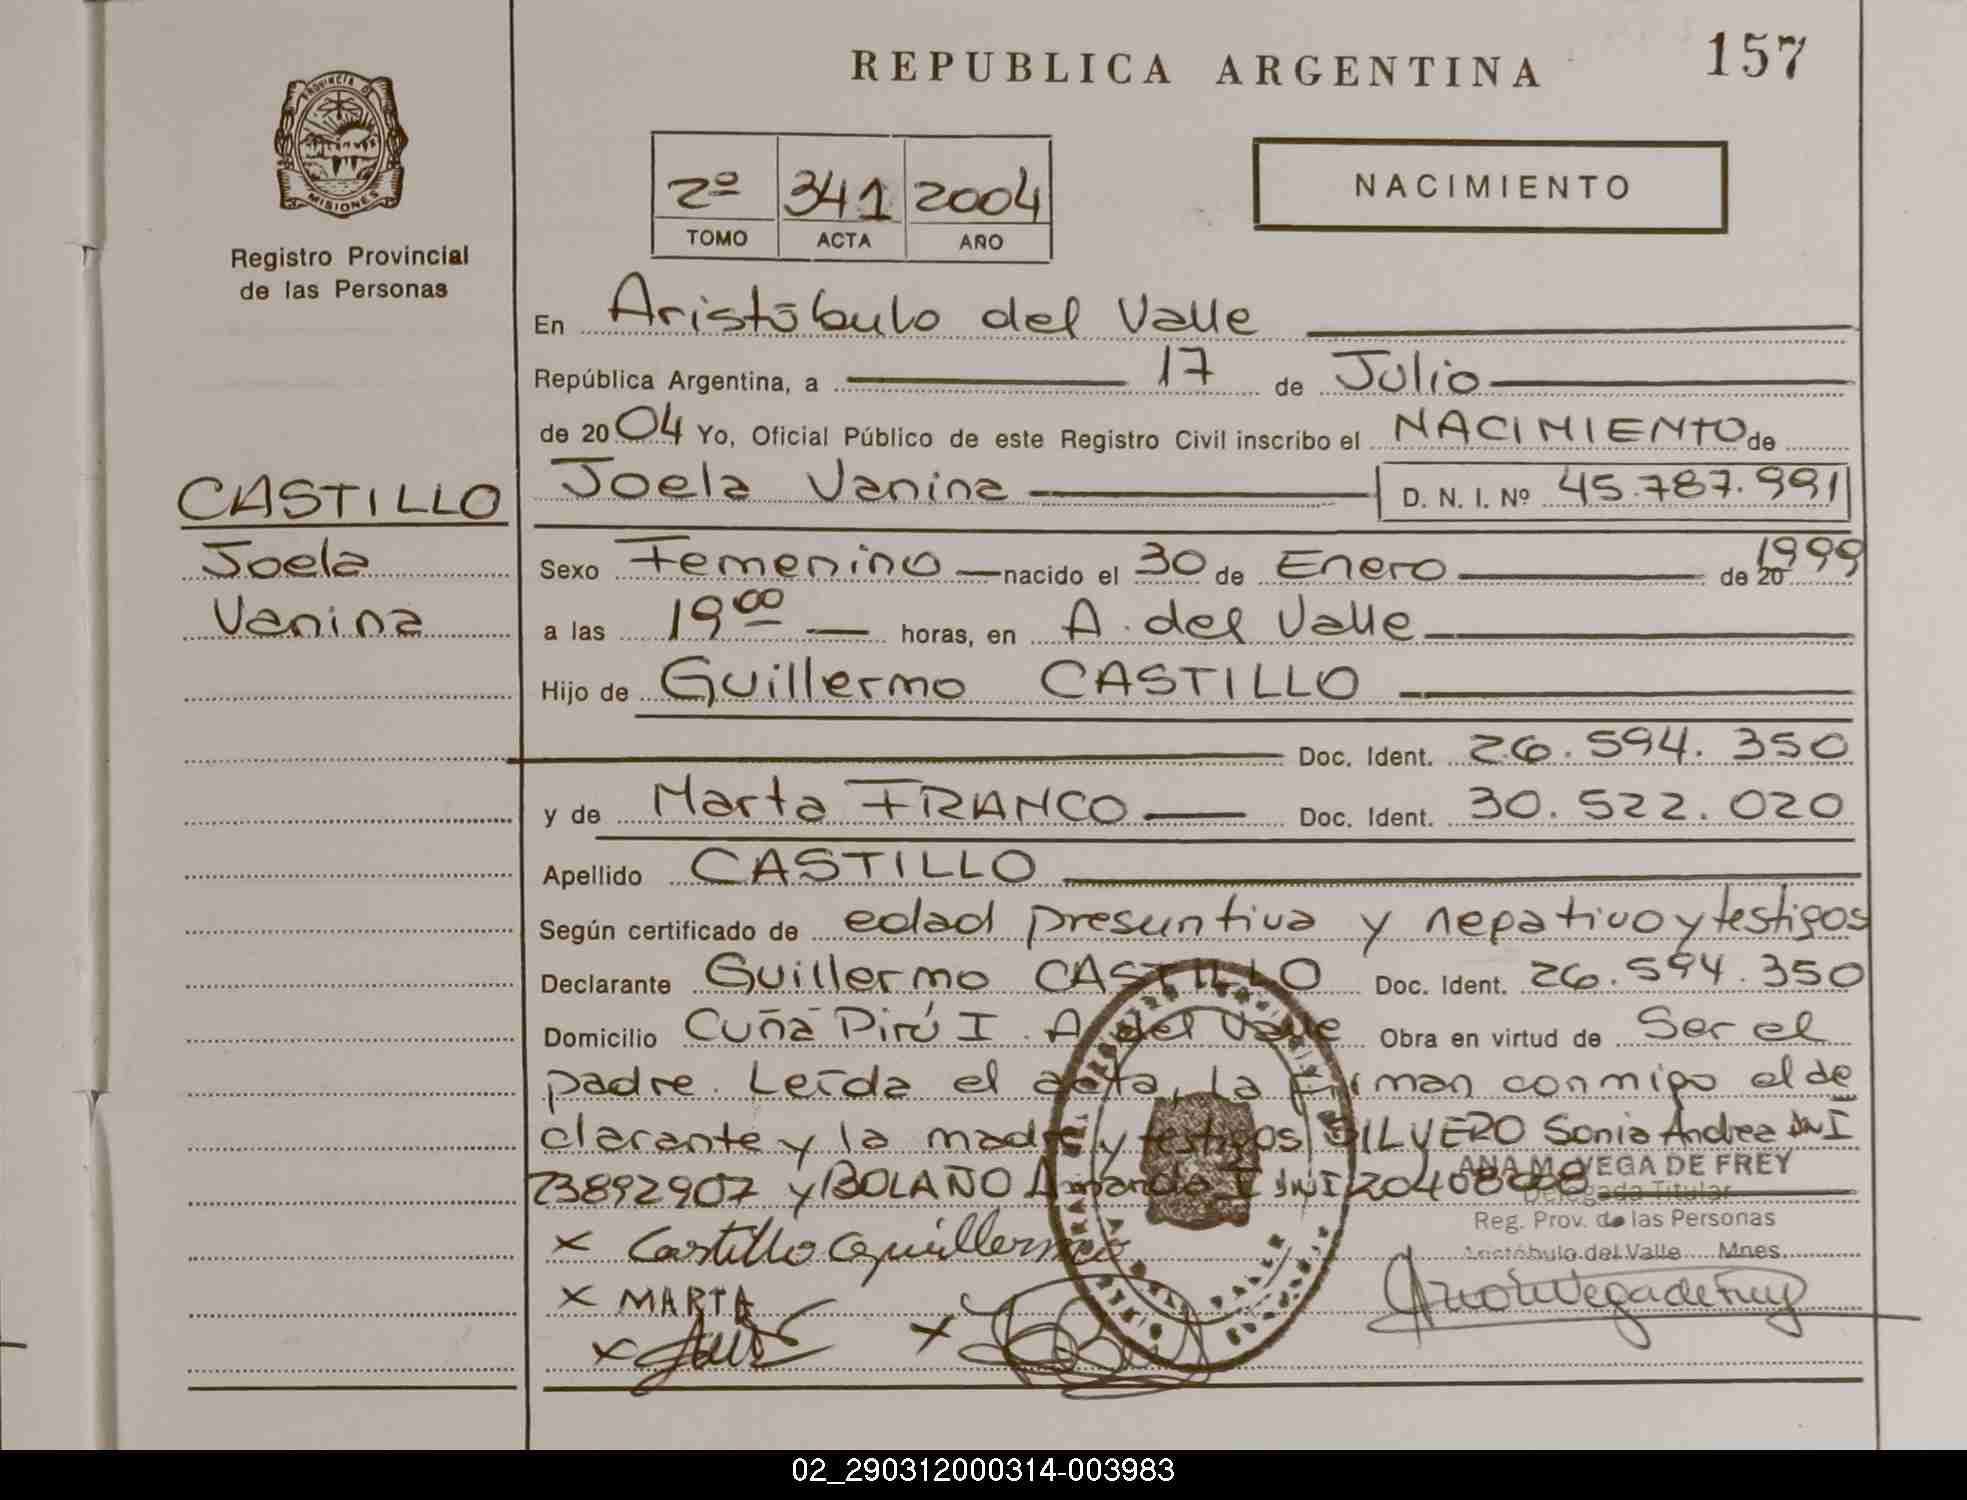 REPUBLICA ARGENTINA
157
PROVINCIA DE
MISIONES
Registro Provincial
de las Personas
2º 341 2004
TOMO ACTA AÑO
NACIMIENTO
En Aristóbulo del Valle
República Argentina, a 17 de Julio
de 2004 Yo, Oficial Público de este Registro Civil inscribo el NACIMIENTO de
CASTILLO
Joela
Vanina
Joela Vanina D. N. I. Nº 45.787.991
Sexo Femenino nacido el 30 de Enero de 20 1999
a las 19 00 horas, en A. del Valle
Hijo de Guillermo CASTILLO
Doc. Ident. 26.594.350
y de Marta FRANCO Doc. Ident. 30.522.020
Apellido CASTILLO
Según certificado de edad presuntiva y negativo y testigos
Declarante Guillermo CASTILLO Doc. Ident. 26.594.350
Domicilio Cuña Pirú I. A. del Valle Obra en virtud de Ser el
padre. Leída el acta, la firman conmigo el de
clarante y la madre y testigos SILVERO Sonia Andrea DNI
23892907 y BOLAÑO Armando DNI
ANA M. VEGA DE FREY
Delegada Titular
Reg. Prov. de las Personas
Aristóbulo del Valle Mnes.
x Castillo Guillermo
x MARTA
x x